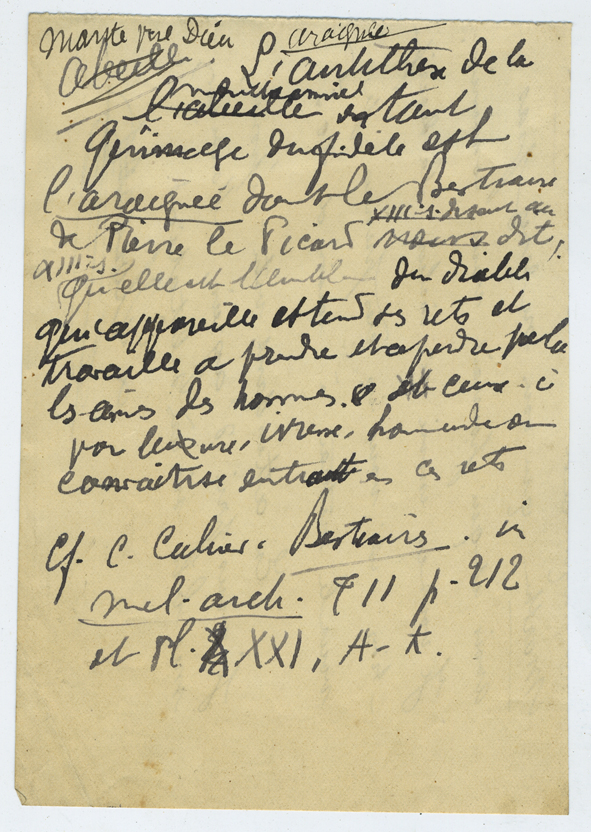 araignée
Dieu
Abeille
L'antithèse de la
l'abeille étant
l'image du fidèle est
l'araignée dont le Bestiaire
XIII-s. disant au
de Pierre le Picard nous dit
XIII-s.
qu'elle est l'emblème du diable
qui appareille et tend ses rets et
travaille a prendre et a perdre
les âmes des hommes. et ceux-ci
par luxure, ivresse, homicide ou
convoitise entrant en ces rets
Cf. C. Cahier. Bestiaires. in
mel. arch. TII p. 212
et Pl. XXI, A-